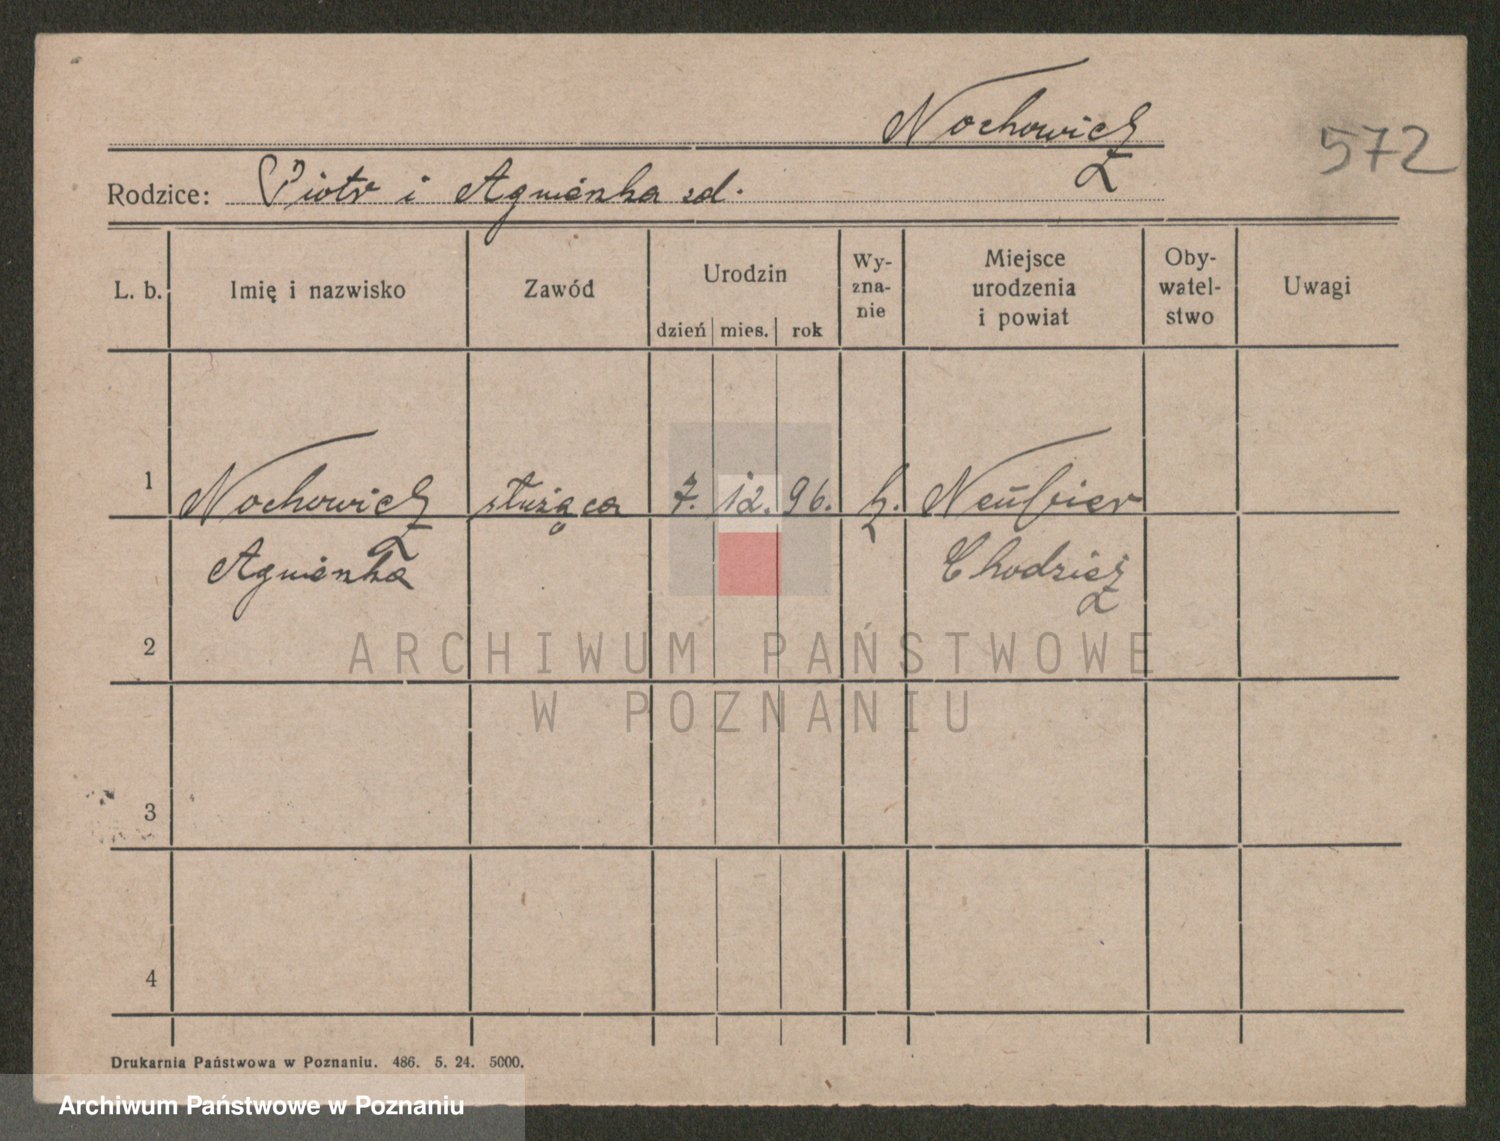 Nochowicz
572
Rodzice: Piotr i Agnieszka zd.
L. b.
Imię i nazwisko
Zawód
Urodzin
dzień mies. rok
Wy-
zna-
nie
Miejsce
urodzenia
i powiat
Oby-
watel-
stwo
Uwagi
1 Nochowicz służąca 7. 12. 96. k. Neubier
Agnieszka Chodzież
2
ARCHIWUM PAŃSTWOWE
W POZNANIU
3
4
Drukarnia Państwowa w Poznaniu. 486. 5. 24. 5000.
Archiwum Państwowe w Poznaniu